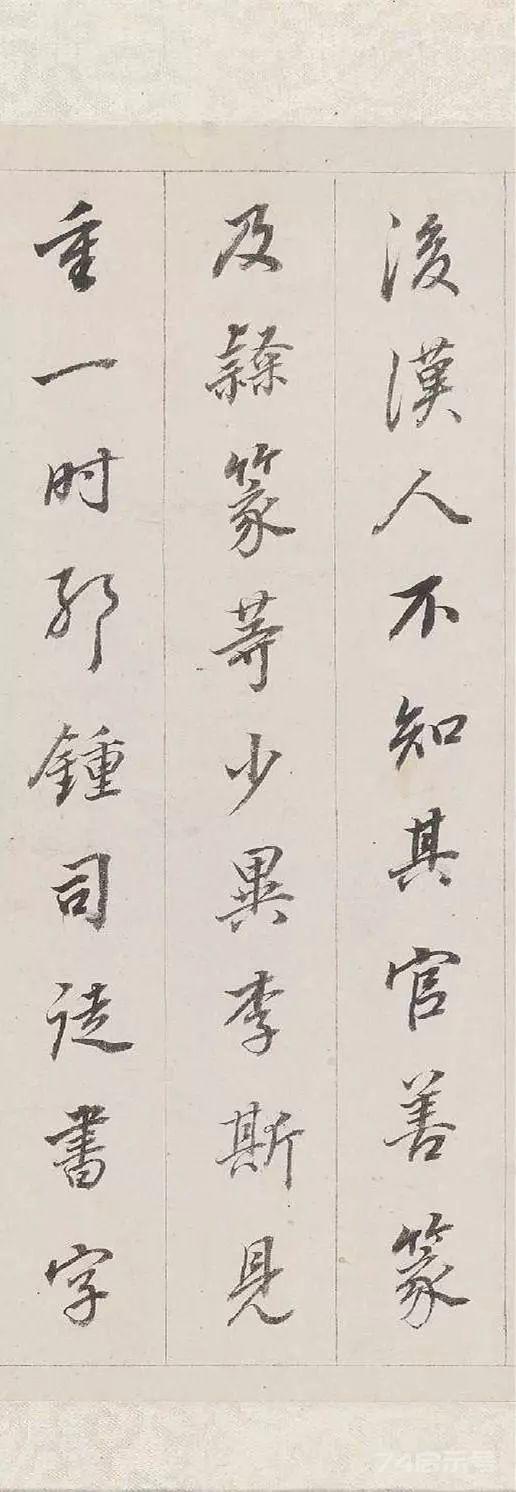 後漢人不知其官善篆
及隸篆等少異李斯見
重一时邪鍾司徒書字
74启示号